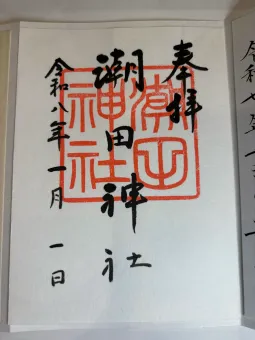 奉拝
潮田神社
令和八年一月一日
潮田
神社
令和七年